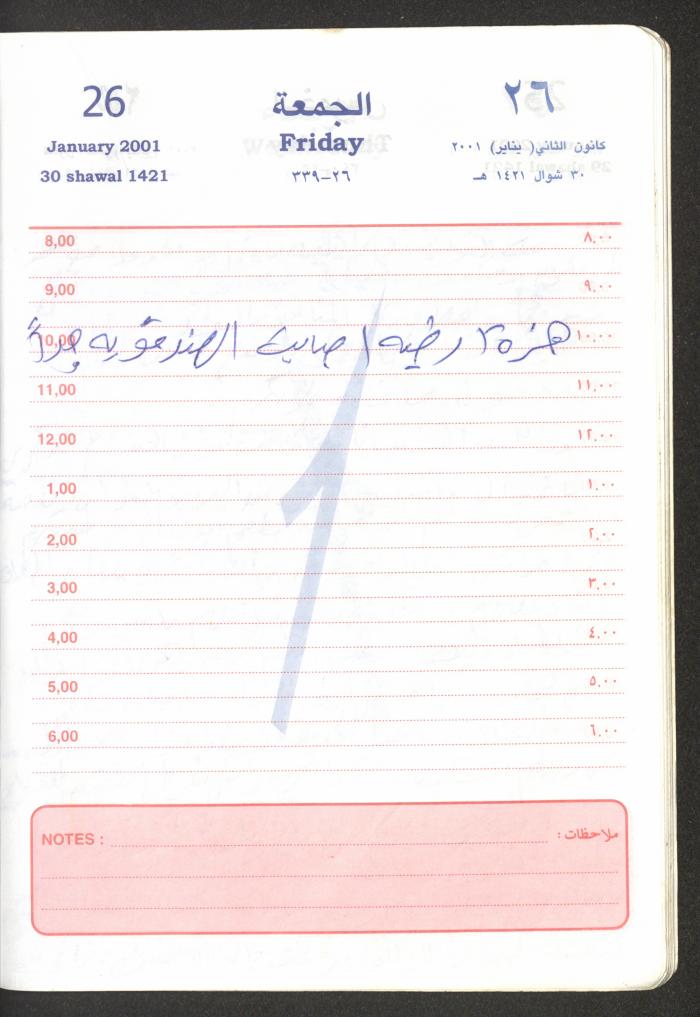 26 الجمعة ٢٦
January 2001 Friday كانون الثاني( يناير) ٢٠٠١
30 shawal 1421 ٢٦-٣٣٩ ٣٠ شوال ١٤٢١ هـ
8,00 ٨.٠٠
9,00 ٩.٠٠
هزة ارضيه اصابت الهند قويه جداً
10,00 ١٠.٠٠
11,00 ١١.٠٠
12,00 ١٢.٠٠
1,00 ١.٠٠
2,00 ٢.٠٠
3,00 ٣.٠٠
4,00 ٤.٠٠
5,00 ٥.٠٠
6,00 ٦.٠٠
NOTES : ملاحظات :